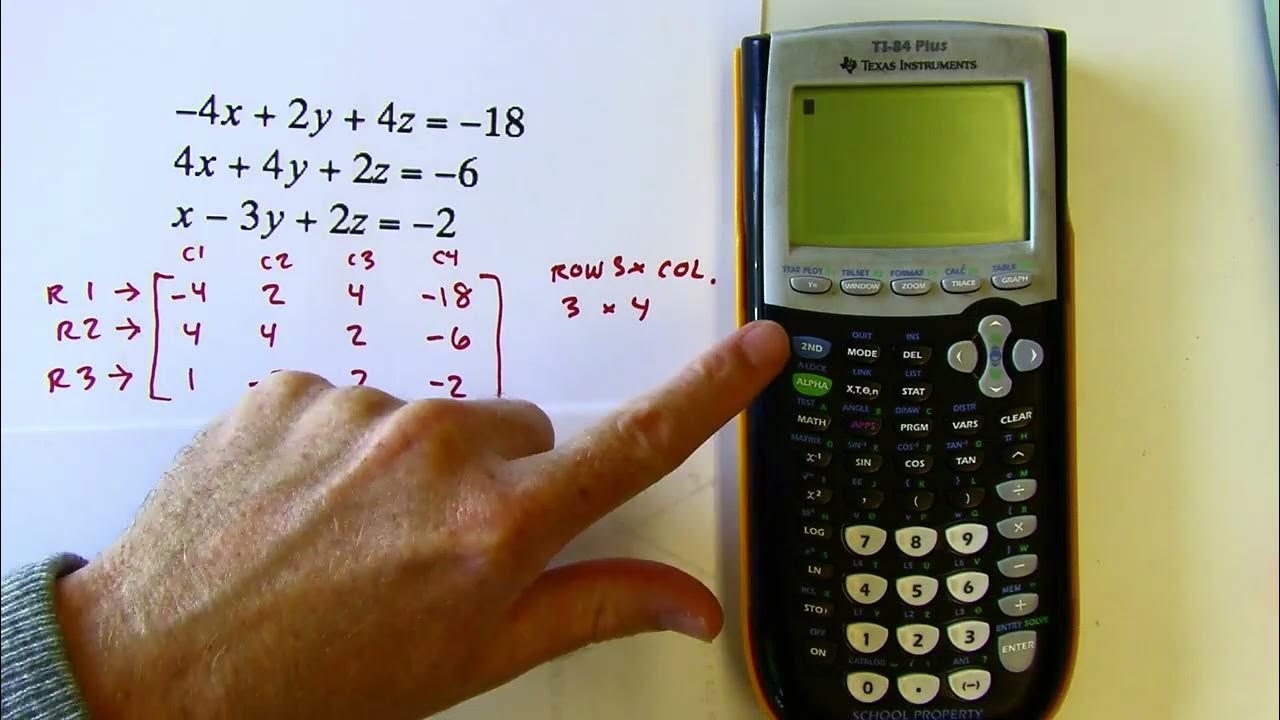 −4x + 2y + 4z = −18
4x + 4y + 2z = −6
x − 3y + 2z = −2
C1 C2 C3 C4
R1 → -4 2 4 -18
R2 → 4 4 2 -6
R3 → 1 2 -2
ROWS x COL.
3 x 4
TI-84 Plus
TEXAS INSTRUMENTS
STAT PLOT F1 TBLSET F2 FORMAT F3 CALC F4 TABLE F5
Y= WINDOW ZOOM TRACE GRAPH
QUIT INS
2ND MODE DEL
A-LOCK LINK LIST
ALPHA X,T,θ,n STAT
TEST A ANGLE B DRAW C DISTR
MATH APPS PRGM VARS CLEAR
MATRIX D SIN⁻¹ E COS⁻¹ F TAN⁻¹ G π H
x⁻¹ SIN COS TAN ^
√ I EE J { K } L e M
x² , ( ) ÷
10ˣ N u O v P w Q [ R
LOG 7 8 9 ×
eˣ S L4 T L5 U L6 V ] W
LN 4 5 6 −
RCL X L1 Y L2 Z L3 θ MEM "
STO▸ 1 2 3 +
OFF CATALOG i : ANS ? ENTRY SOLVE
ON 0 . (−) ENTER
SCHOOL PROPERTY